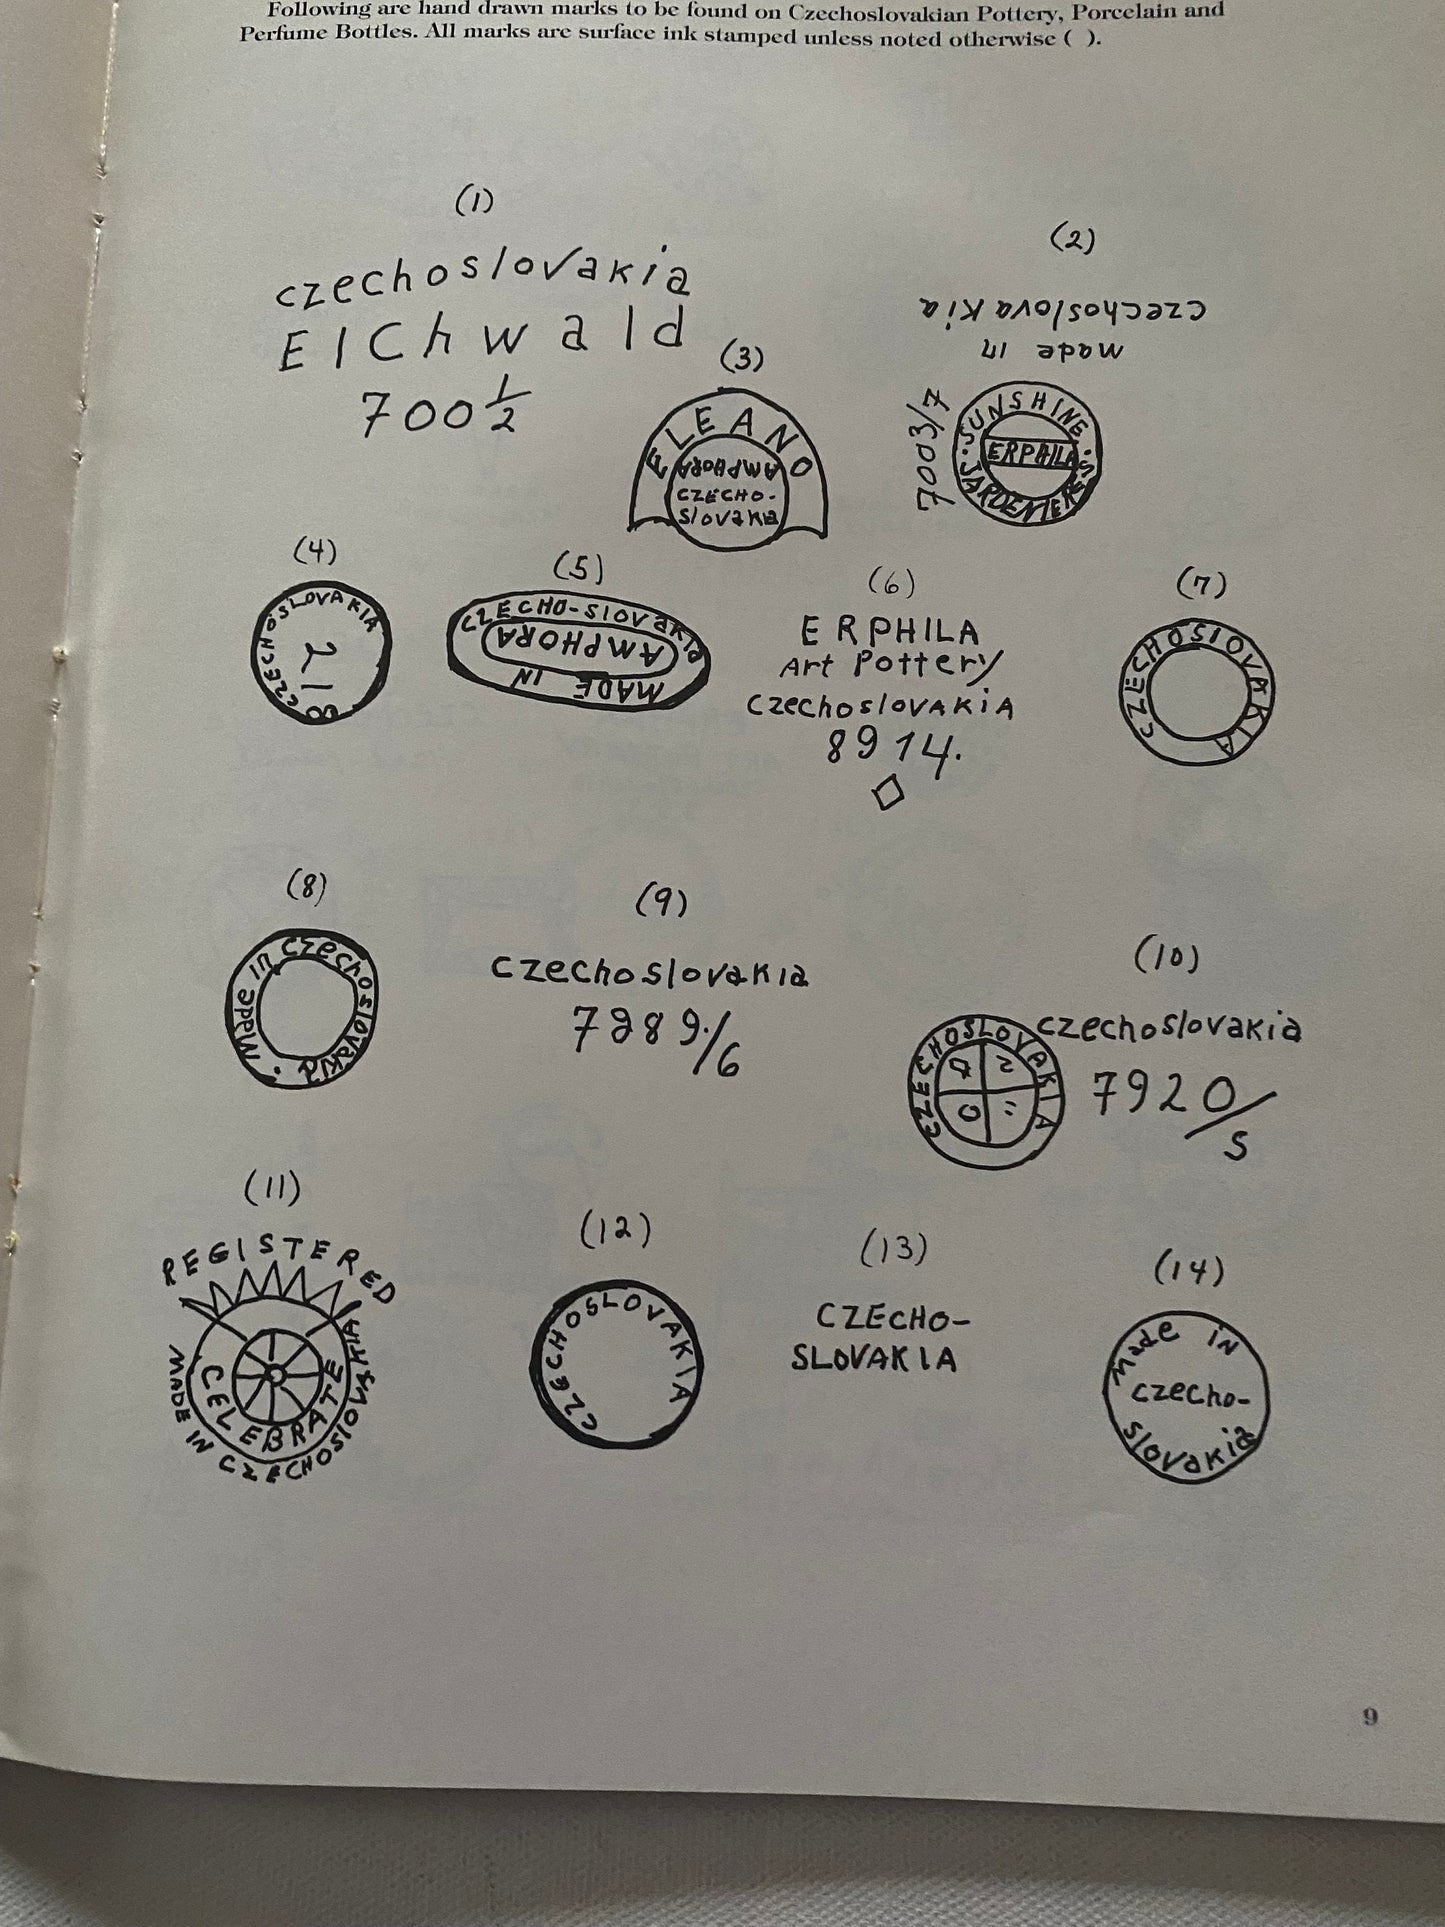 Following are hand drawn marks to be found on Czechoslovakian Pottery, Porcelain and
Perfume Bottles. All marks are surface ink stamped unless noted otherwise ( ).
(1)
czechoslovakia
EIChwald
700 1/2
(2)
czechoslovakia
made in
7003/7
SUNSHINE
ERPHILA
JARDENIERES
(3)
ELEANO
AMPHORA
CZECHO-
SlovaKia
(4)
CZECHOSLOVAKIA
21
(5)
CZECHO-SlovaKia
AMPHORA
MADE IN
(6)
ERPHILA
Art Pottery
CzechoslovAKiA
8914.
(7)
CZECHOSlOVAKIA
(8)
Made in Czechoslovakia
(9)
czechoslovakia
7289./6
(10)
CZECHOSLOVAKIA
czechoslovakia
7920/s
(11)
REGISTERED
CELEBRATE
MADE IN CZECHOSLOVAKIA
(12)
CZECHOSLOVAKIA
(13)
CZECHO-
SLOVAKIA
(14)
made in
czecho-
slovakia
9